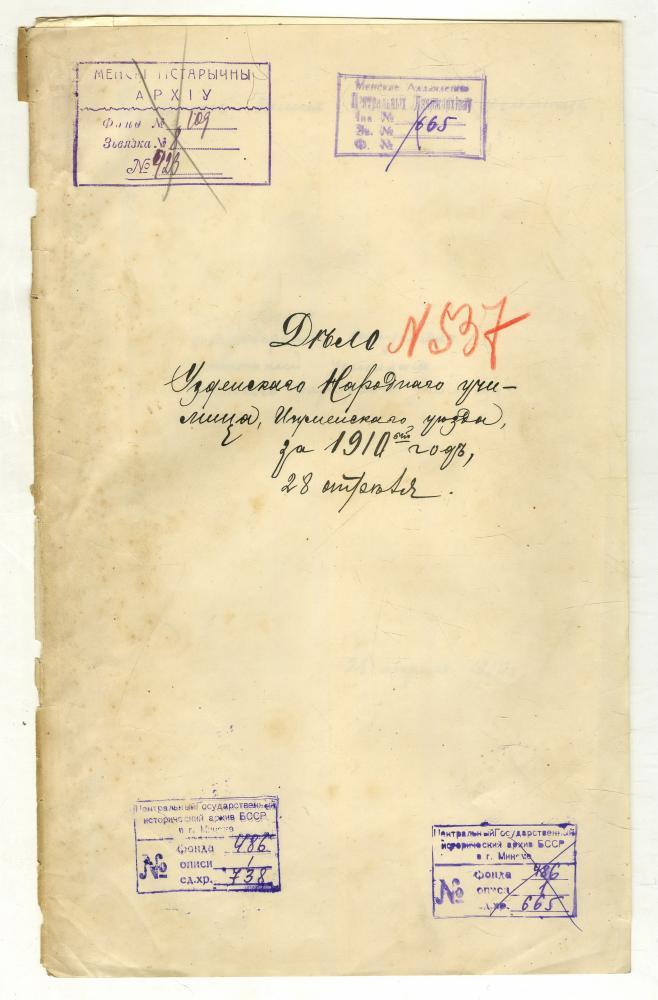 МЕНСКІ ГІСТАРЫЧНЫ
АРХІУ
Фонд № 109
Зьвязка № 8
№ 926
Менскае Аддзяленне
Цэнтральных Дзяржархіваў
Інв. №
Зв. № 665
Ф. №
Дѣло № 537
Узденскаго Народнаго учи-
лища, Игуменскаго уѣзда,
за 1910 годъ,
28 апрѣля.
Центральный Государственный
исторический архив БССР
в г. Минске
№
фонда 486
описи 1
ед.хр. 738
Центральный Государственный
исторический архив БССР
в г. Минске
№
фонда 486
описи 1
ед.хр. 665